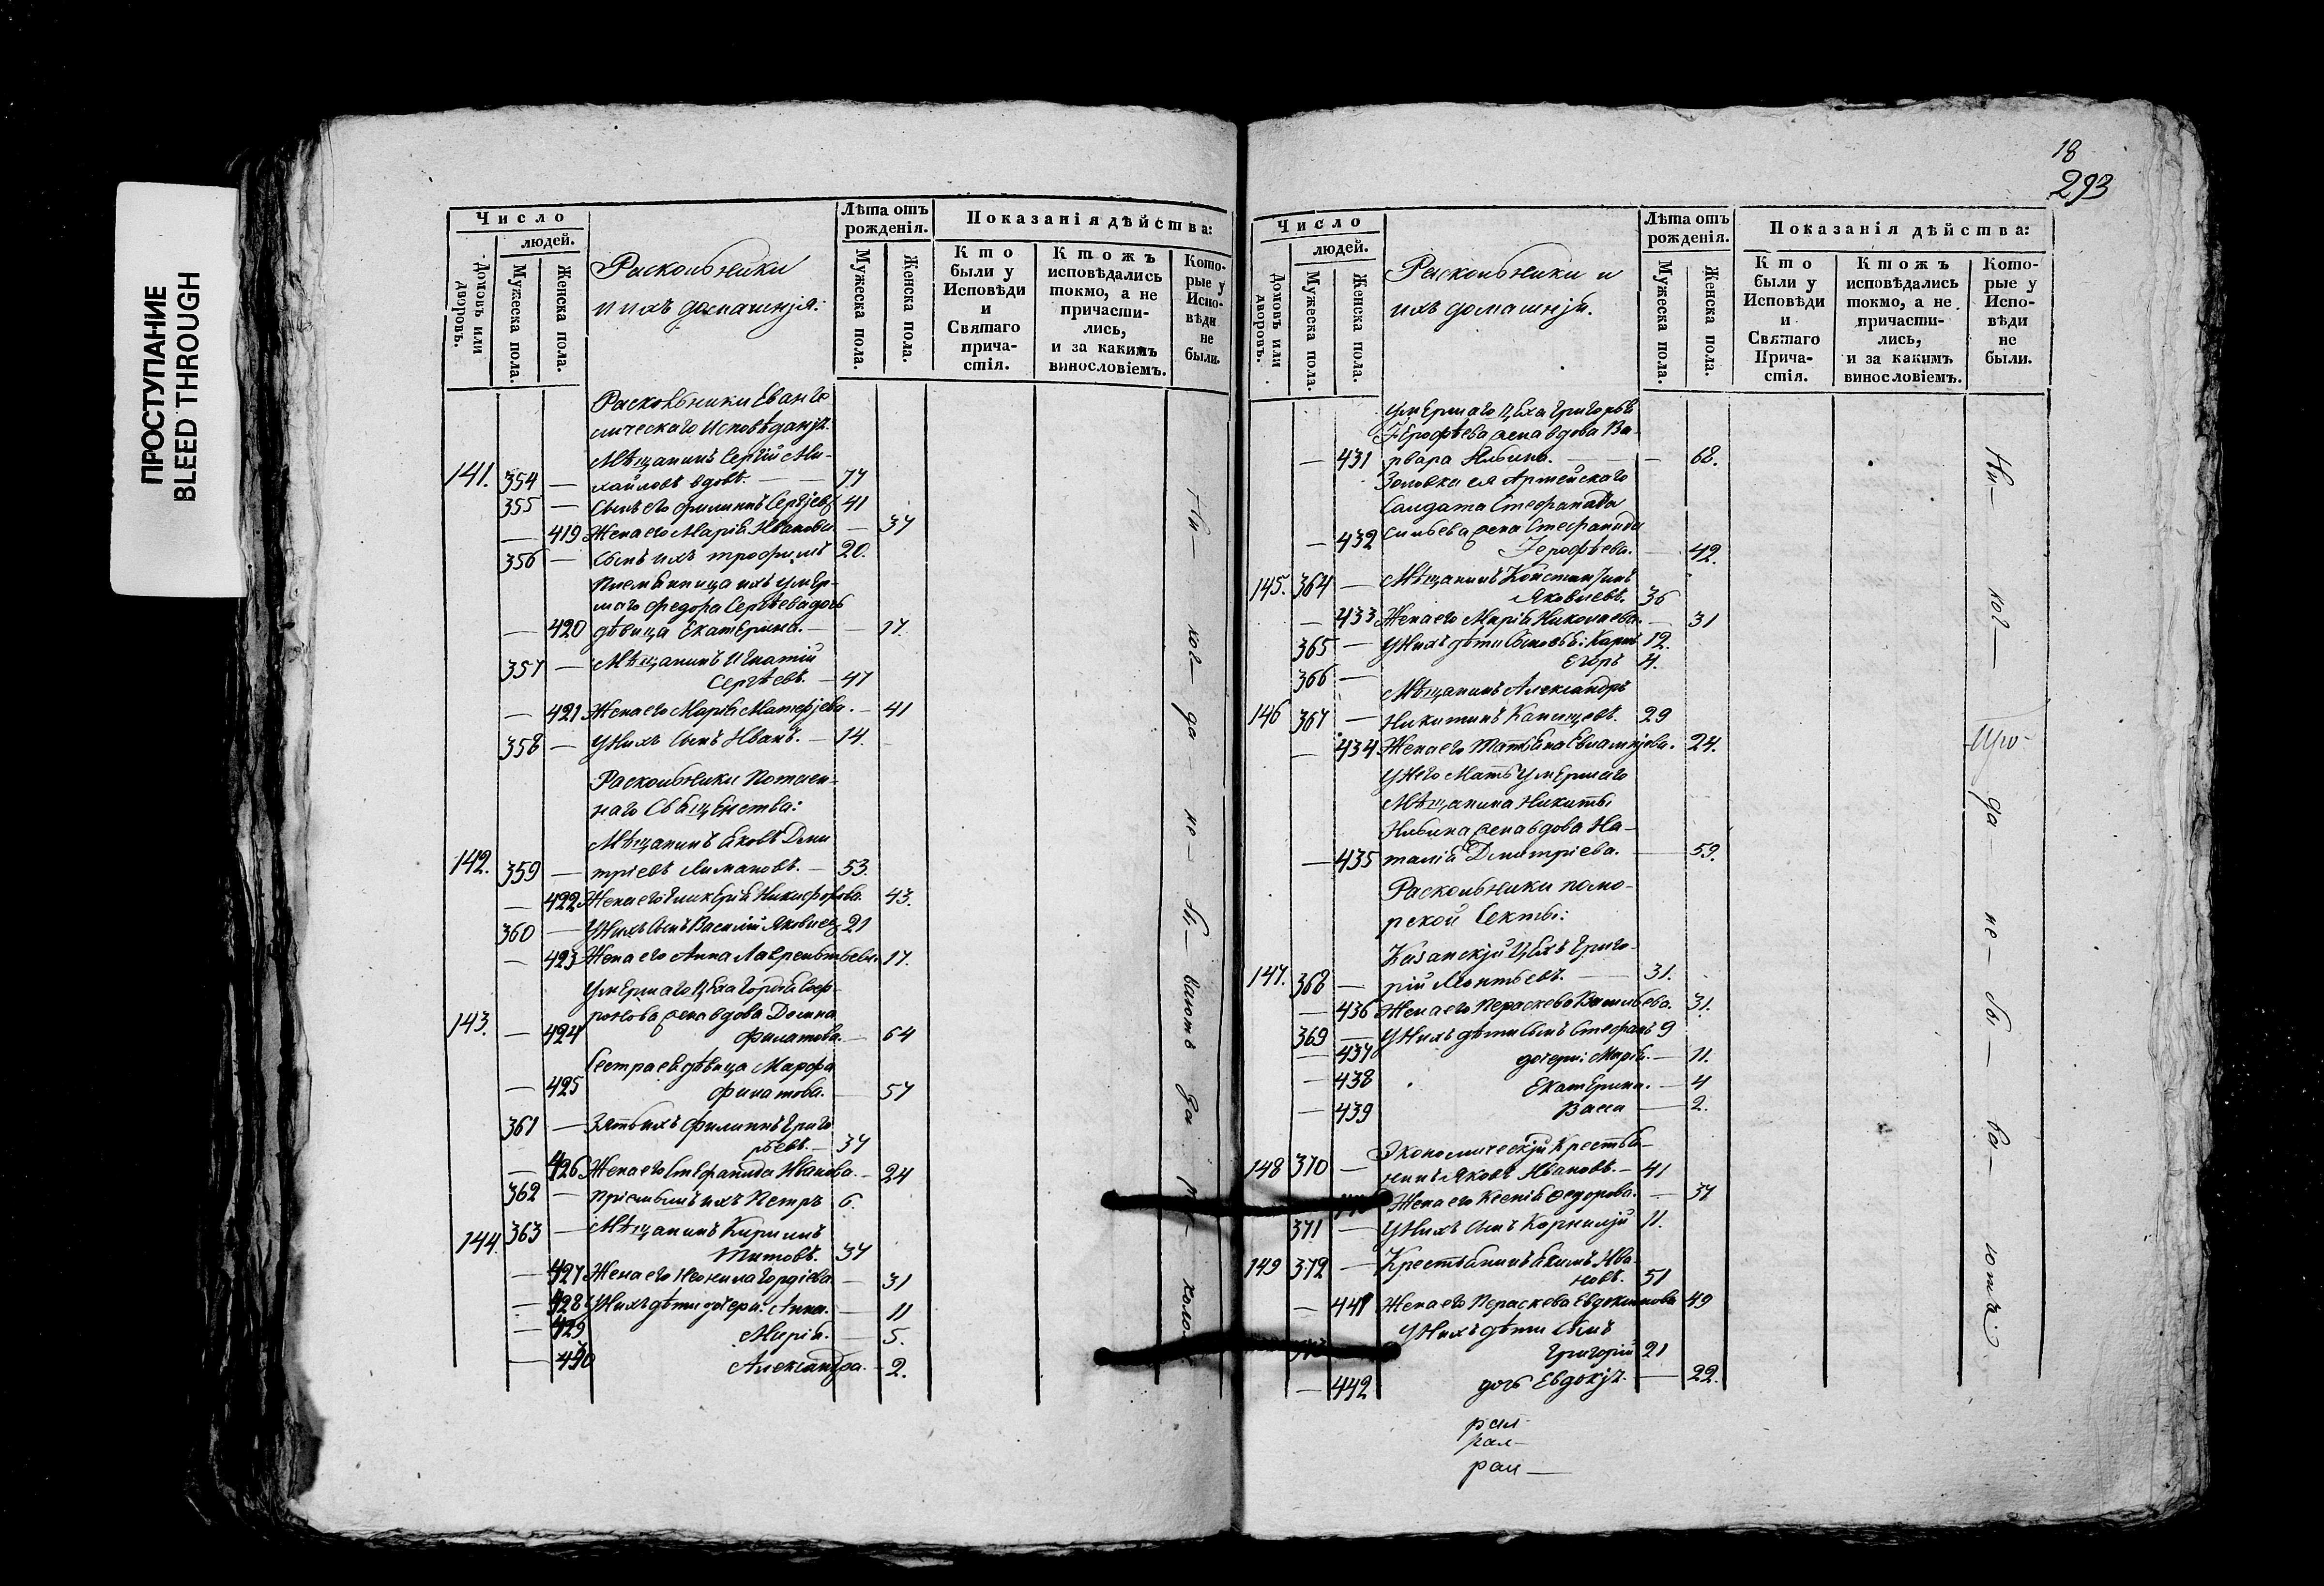 ПРОСТУПАНИЕ
BLEED THROUGH
Число
людей.
Домовъ или дворовъ.
Мужеска пола.
Женска пола.
Раскольники
и ихъ домашнія:
Лѣта отъ рожденія.
Мужеска пола.
Женска пола.
Показанія дѣйства:
Кто были у Исповѣди и Святаго причастія.
Ктожъ исповѣдались токмо, а не причастились, и за какимъ винословіемъ.
Которые у Исповѣди не были.
Раскольники Еванге
лическаго Исповѣданія.
Мѣщанинъ Сергій Ми-
141. 354 — хайловъ вдовъ. — 77
355 — Сынъ его Филиппъ Сергіевъ 41
— 419 Жена его Марія Иванова — 37
356 — Сынъ ихъ Трофимъ 20.
Племянница ихъ умер-
шаго Федора Сергѣева дочь
— 420 дѣвица Екатерина. — 17.
357 — Мѣщанинъ Игнатій
Сергѣевъ. — 47
— 421 Жена его Марія Матфіева. — 41
358 — У нихъ Сынъ Иванъ. — 14.
Раскольники Потаен-
наго Священства:
Мѣщанинъ Яковъ Дми
142. 359 — тріевъ Лимановъ. — 53.
— 422 Жена его Гликерія Никифорова. 43.
360 — У нихъ Сынъ Василій Яковлев 21
— 423 Жена его Анна Лаврентьева. 17.
Умершаго Цеха Гордѣя
143. — 424 жена вдова Домна
Филатова. — 64
Сестра ея дѣвица Марфа
— 425 Филатова. — 57
361 — Зять ихъ Филиппъ Григо
рьевъ. — 37
— 426 Жена его Стефанида Иванова. — 24
362 — Пріемышъ ихъ Петръ 6.
144. 363 — Мѣщанинъ Кириллъ
Титовъ. 37
— 427 Жена его Неонила Гордіева. — 31
— 428 У нихъ дѣти дочери: Анна. — 11
— 429 Марія. — 5.
— 430 Александра. — 2.
18
293
Число
людей.
Домовъ или дворовъ.
Мужеска пола.
Женска пола.
Раскольники и
ихъ домашнія.
Лѣта отъ рожденія.
Мужеска пола.
Женска пола.
Показанія дѣйства:
Кто были у Исповѣди и Святаго Причастія.
Ктожъ исповѣдались токмо, а не причастились, и за какимъ винословіемъ.
Которые у Исповѣди не были.
Умершаго Цеха Григорья
Іерофѣева жена вдова Ва-
— 431 рвара Ильина. — 68.
Золовка ея Армейскаго
Солдата
жена Стефанида
— 432 Іерофѣева. — 42.
145. 364 — Мѣщанинъ Константинъ
Яковлевъ. 36
— 433 Жена его Марія Николаева. — 31
365 — У нихъ дѣти Сыновья: Карпъ 12.
366 — Егоръ 4.
Мѣщанинъ Александръ
146 367 — Никитинъ 29
— 434 Жена его Татьяна Евлампіева. 24.
У него Мать умершаго
Мѣщанина Никиты
Ильина жена вдова На-
— 435 талія Дмитріева. — 59.
Раскольники помо-
рской Секты:
Казанскій Цехъ Григо-
147. 368 — рій Леонтьевъ. — 31.
— 436 Жена его Параскева Васильева. 31.
369 — У нихъ дѣти Сынъ Стефанъ 9
— 437 дочери: Марія. — 11.
— 438 Екатерина. — 4
— 439 Васса — 2.
Экономическій Крестья-
148 370 — нинъ Яковъ Ивановъ. — 41
Жена его Ксенія Федорова. — 37
371 — У нихъ Сынъ Корнилій 11.
149 372 — Крестьянинъ Якимъ Ива-
новъ. 51
— 441 Жена его Параскева Евдокимова 49
У нихъ дѣти Сынъ
Григорій 21
— 442 дочь Евдокія. — 22.
Ни — ког — да — не — бы — ва — ютъ.
рал-
рал-
рал —